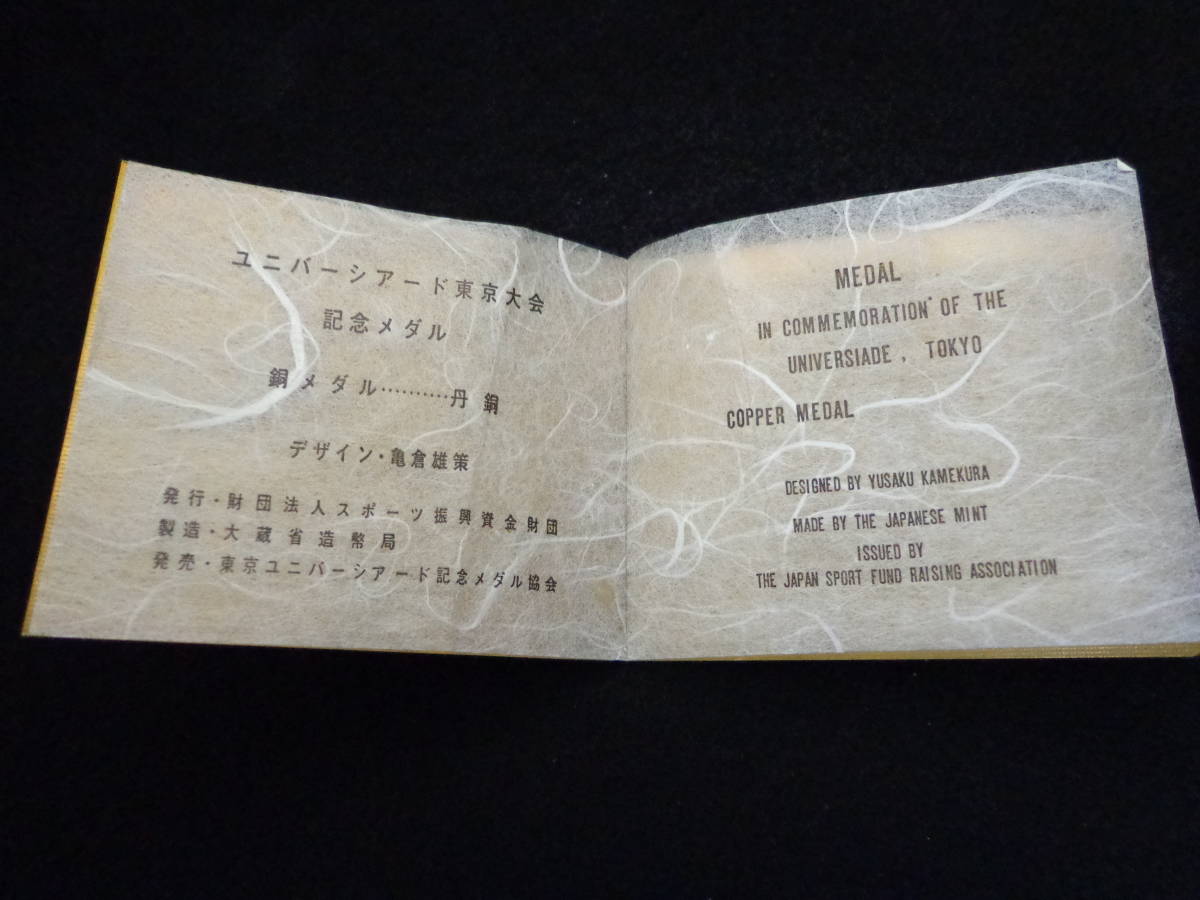 ユニバーシアード東京大会
記念メダル
銅メダル‥‥‥‥‥丹銅
デザイン・亀倉雄策
発行・財団法人スポーツ振興資金財団
製造・大蔵省造幣局
発売・東京ユニバーシアード記念メダル協会
MEDAL
IN COMMEMORATION OF THE
UNIVERSIADE, TOKYO
COPPER MEDAL
DESIGNED BY YUSAKU KAMEKURA
MADE BY THE JAPANESE MINT
ISSUED BY
THE JAPAN SPORT FUND RAISING ASSOCIATION